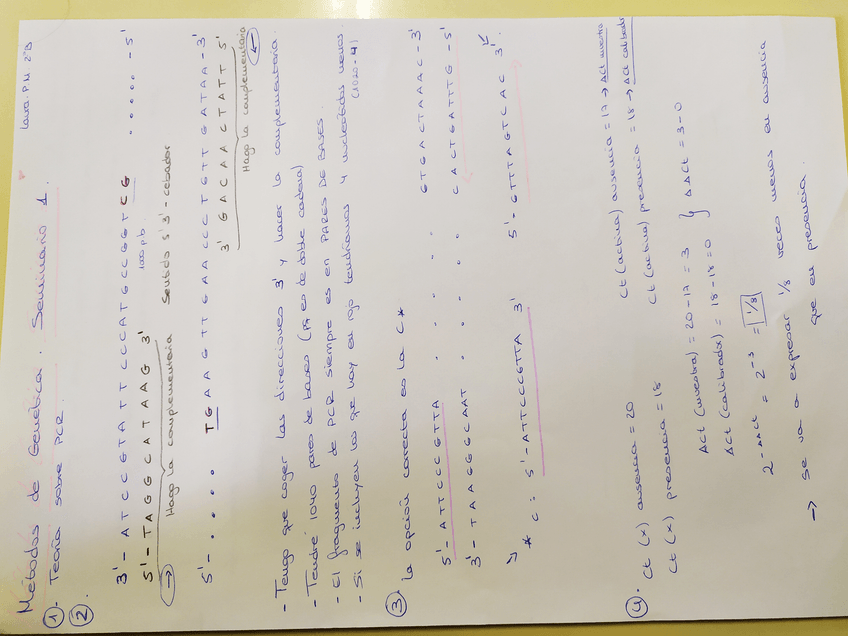 Laura P.M 2ºB
Métodos de Genética. Seminario 1.
① - Teoría sobre PCR.
②.
3' - ATCCGTATTCCCATGCCGGTCG ..... - 5'
5' - TAGGCATAAG 3' 1000 pb.
→ Hago la complementaria Sentido 5' 3' - cebador
5' - ..... TGAAGTTGAACCCTGTTGATAA - 3'
3' GACAACTATT 5'
Hago la complementaria ←
- Tengo que coger las direcciones 3' y hacer la complementaria.
- Tendré 1040 pares de bases (es de doble cadena)
- El fragmento de PCR siempre es en PARES DE BASES.
- Si se incluyen los que hay en rojo tendríamos 4 nucleótidos menos. (1020-4)
③. La opción correcta es la C*
5' - ATTCCCGTTA ..... GTGACTAAAC - 3'
3' - TAAGGGCAAT ..... CACTGATTTG - 5'
↳ * C: 5' - ATTCCCGTTA 3' 5' - GTTTAGTCAC 3'
④. Ct (x) ausencia = 20 Ct (activa) ausencia = 17 → ΔCt muestra
Ct (x) presencia = 18 Ct (activa) presencia = 18 → ΔCt calibrador
ΔCt (muestra) = 20 - 17 = 3
ΔCt (calibrador) = 18 - 18 = 0 } ΔΔCt = 3 - 0
2^-ΔΔCt = 2^-3 = 1/8
→ Se va a expresar 1/8 veces menos en ausencia
que en presencia.